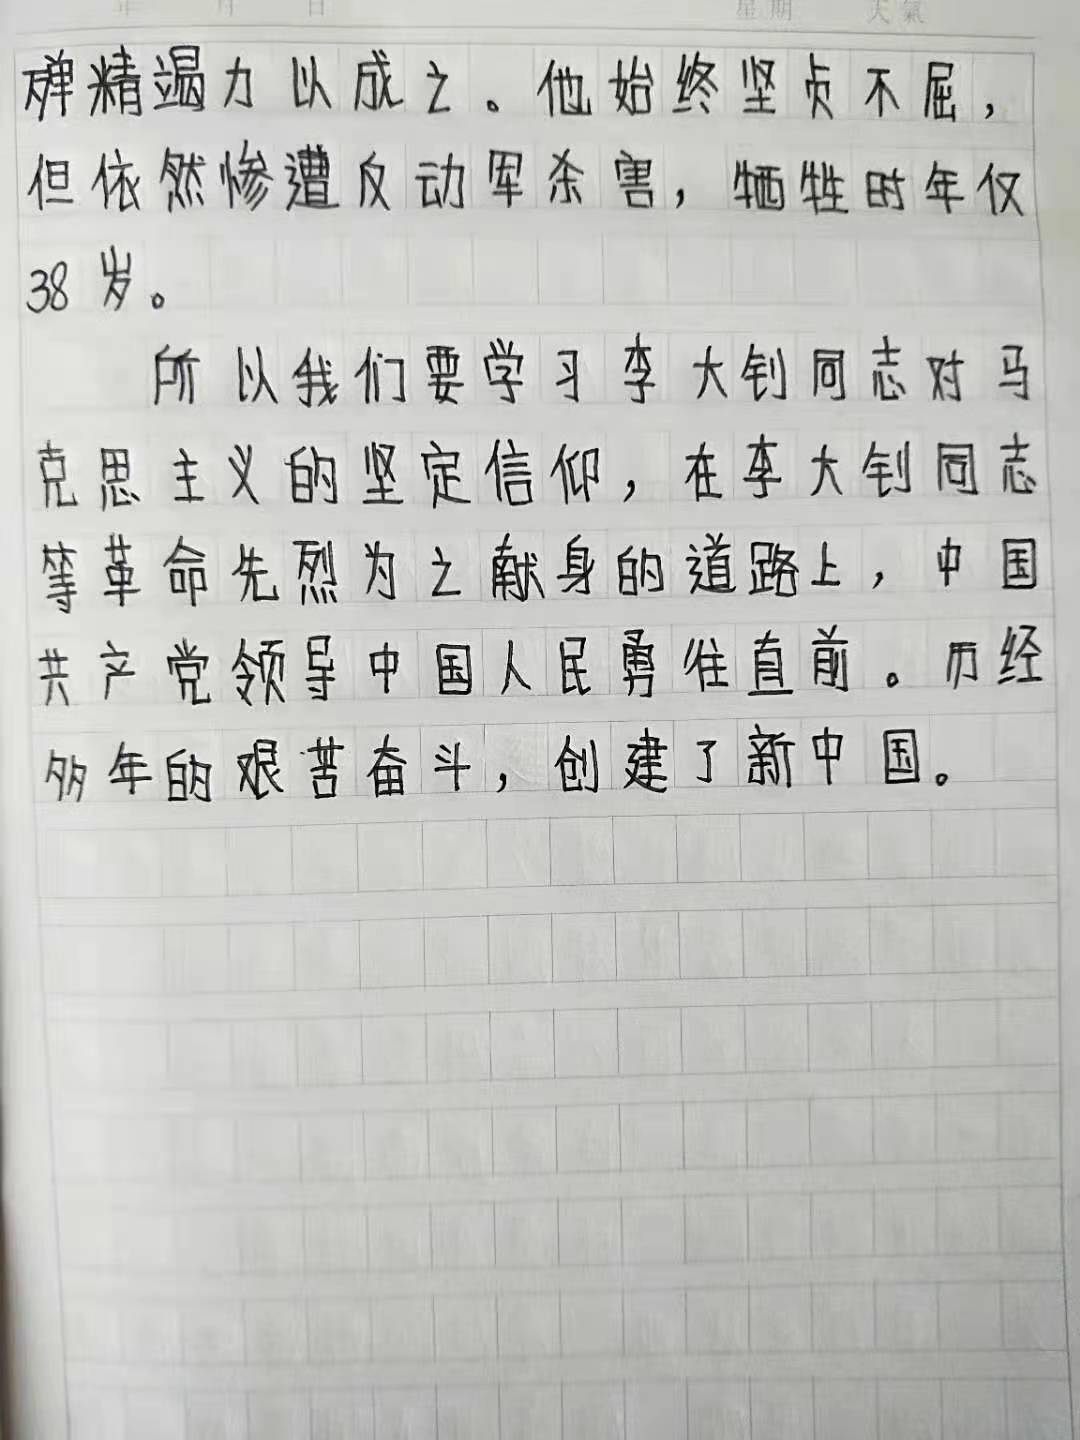 年 月 日 星期 天氣
殚精竭力以成之。他始终坚贞不屈，
但依然惨遭反动军杀害，牺牲时年仅
38岁。
所以我们要学习李大钊同志对马
克思主义的坚定信仰，在李大钊同志
等革命先烈为之献身的道路上，中国
共产党领导中国人民勇往直前。历经
多年的艰苦奋斗，创建了新中国。